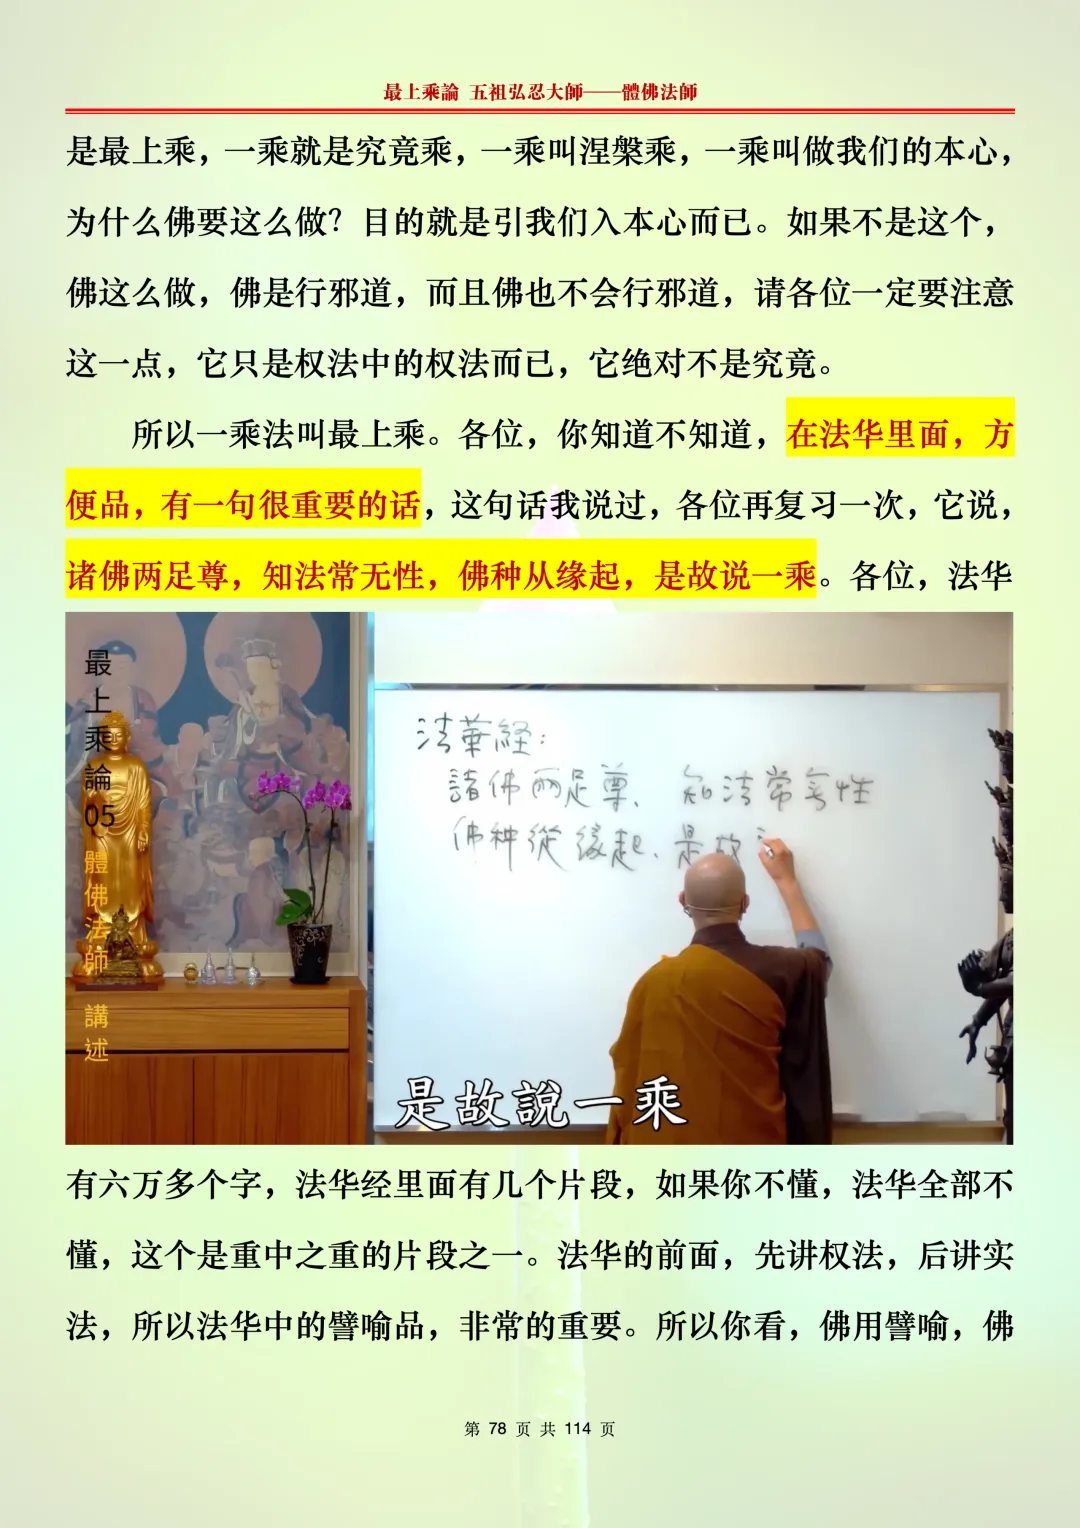 最上乘論 五祖弘忍大師——體佛法師
是最上乘，一乘就是究竟乘，一乘叫涅槃乘，一乘叫做我们的本心，
为什么佛要这么做？目的就是引我们入本心而已。如果不是这个，
佛这么做，佛是行邪道，而且佛也不会行邪道，请各位一定要注意
这一点，它只是权法中的权法而已，它绝对不是究竟。
所以一乘法叫最上乘。各位，你知道不知道，在法华里面，方
便品，有一句很重要的话，这句话我说过，各位再复习一次，它说，
诸佛两足尊，知法常无性，佛种从缘起，是故说一乘。各位，法华
最上乘論05 體佛法師 講述
法華経：
諸佛两足尊、知法常旡性
佛种從缘起、是故
是故說一乘
有六万多个字，法华经里面有几个片段，如果你不懂，法华全部不
懂，这个是重中之重的片段之一。法华的前面，先讲权法，后讲实
法，所以法华中的譬喻品，非常的重要。所以你看，佛用譬喻，佛
第 78 页 共 114 页